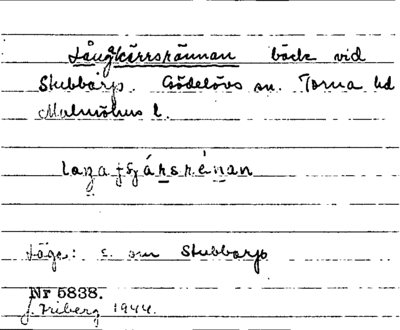 Långkärrsrännan bäck vid
Stubbarp. Gödelövs sn. Torna hd
Malmöhus l.
Läge: s. om Stubbarp
Nr 5838.
J. Friberg 1944.